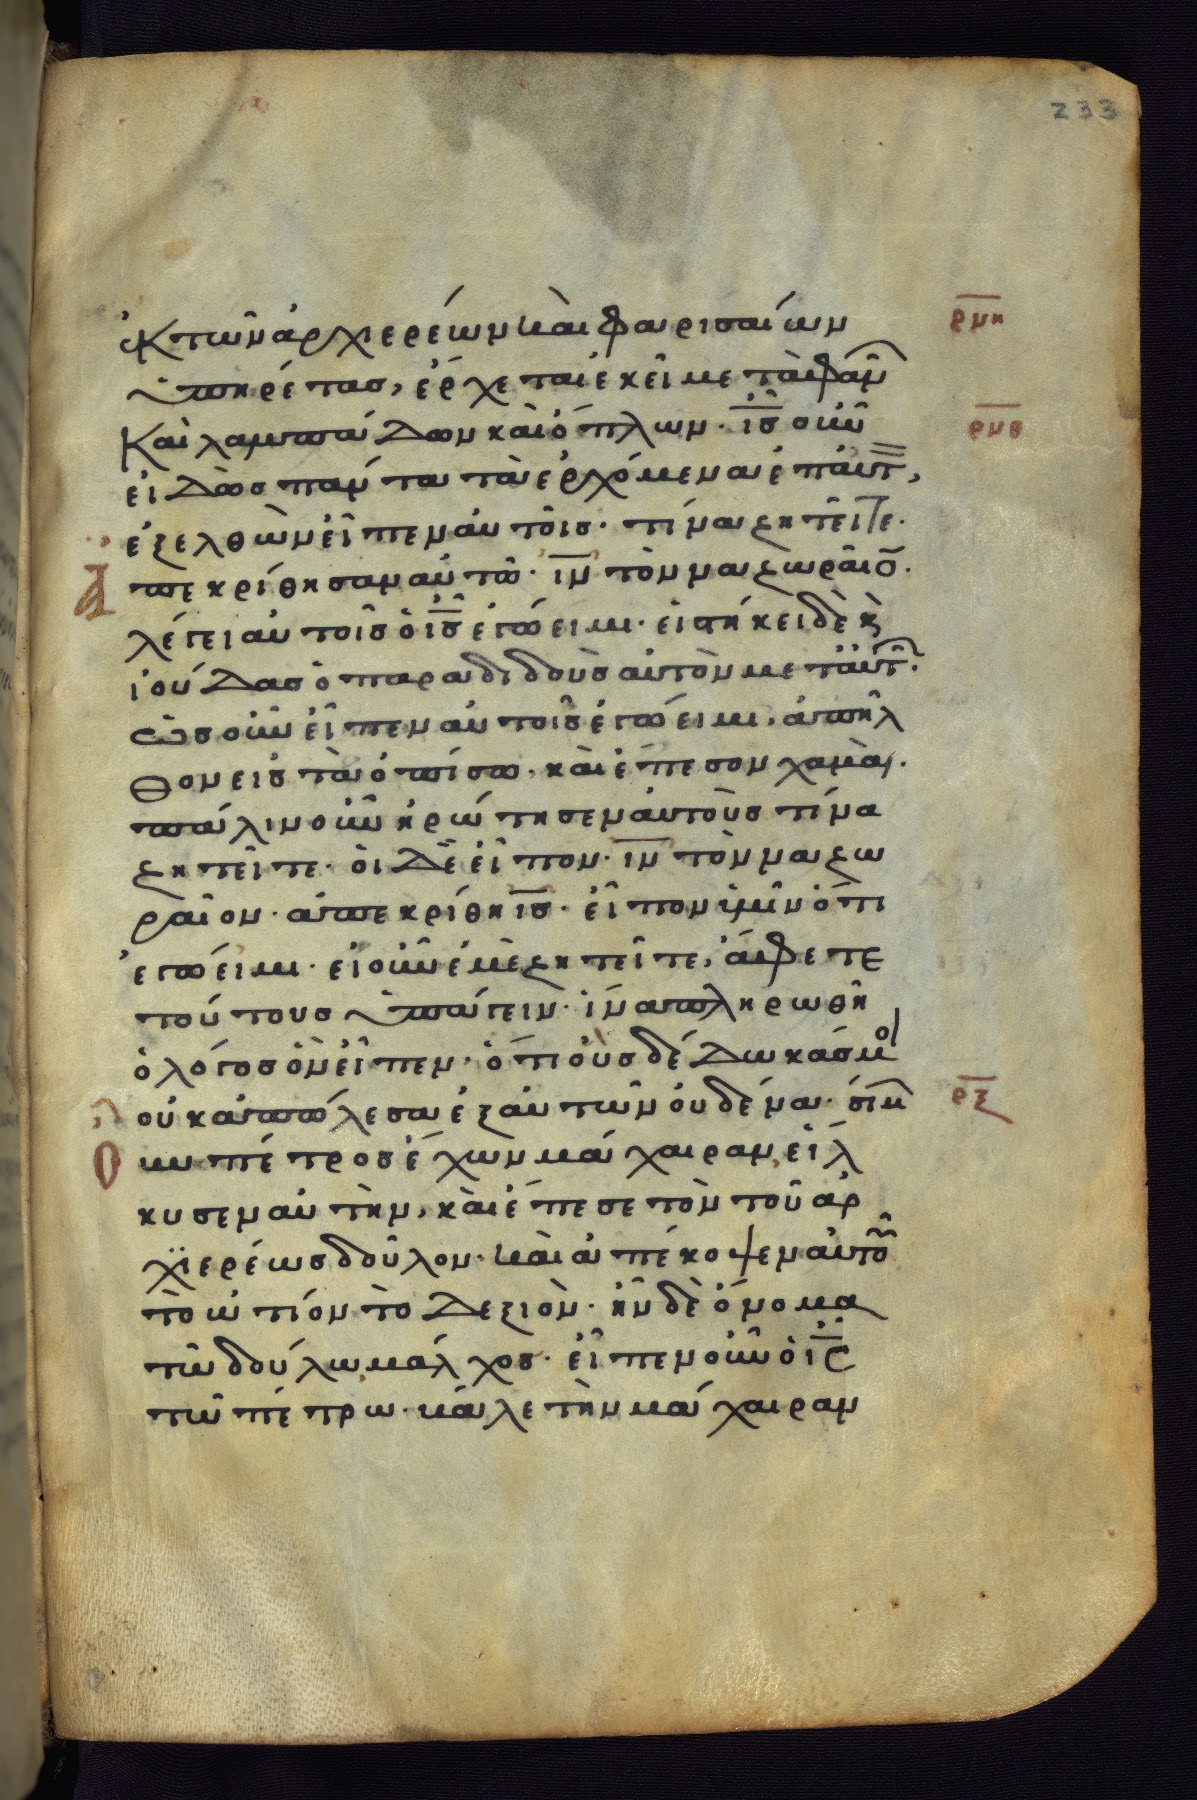 233
ἐκ τῶν ἀρχιερέων καὶ φαρισαίων
ὑπηρέτας, ἔρχεται ἐκεῖ μετὰ φαν̑
καὶ λαμπάδων καὶ ὅπλων· ις̅ οὖν
εἰδὼς πάντα τὰ ἐρχόμενα ἐπ' αὐτ̅,
ἐξελθὼν εἶπεν αὐτοῖς· τίνα ζητεῖτε·
ρμη
ρμθ
ἀπεκρίθησαν αὐτῶ· ιν̅ τὸν ναζωραῖο̅·
λέγει αὐτοῖς ὁ ις̅ ἐγώ εἰμι· εἱστήκει δὲ κ̀
ἰούδας ὁ παραδιδοὺς αὐτὸν μετ' αὐτ̑·
ὡς οὖν εἶπεν αὐτοῖς ἐγώ εἰμι, ἀπῆλ
θον εἰς τὰ ὀπίσω· καὶ ἔπεσον χαμαὶ·
πάλιν οὖν ἠρώτησεν αὐτοὺς τίνα
ζητεῖτε· οἱ δὲ εἶπον· ιν̅ τὸν ναζω
ραῖον· ἀπεκρίθη ις̅· εἶπον ὑμῖν ὅτι
ἐγώ εἰμι· εἰ οὖν ἐμὲ ζητεῖτε, ἄφετε
τούτους ὑπάγειν· ἵνα πληρωθῆ
ὁ λόγος ὃν εἶπεν· ὅτι οὓς δέδωκάς μοι
οὐκ ἀπώλεσα ἐξ αὐτῶν οὐδένα· σίμ
ρξ
ων πέτρος ἔχων μάχαιραν, εἵλ
κυσεν αὐτὴν, καὶ ἔπεσε τὸν τοῦ ἀρ
χϊερέως δοῦλον· καὶ ἀπέκοψεν αὐτοῦ
τὸ ὠτίον τὸ δεξιὸν· ἦν δὲ ὄνομα
τῶ δούλω, μάλχος· εἶπεν οὖν ὁ ις̅
τῶ πέτρω· βάλε τὴν μάχαιραν